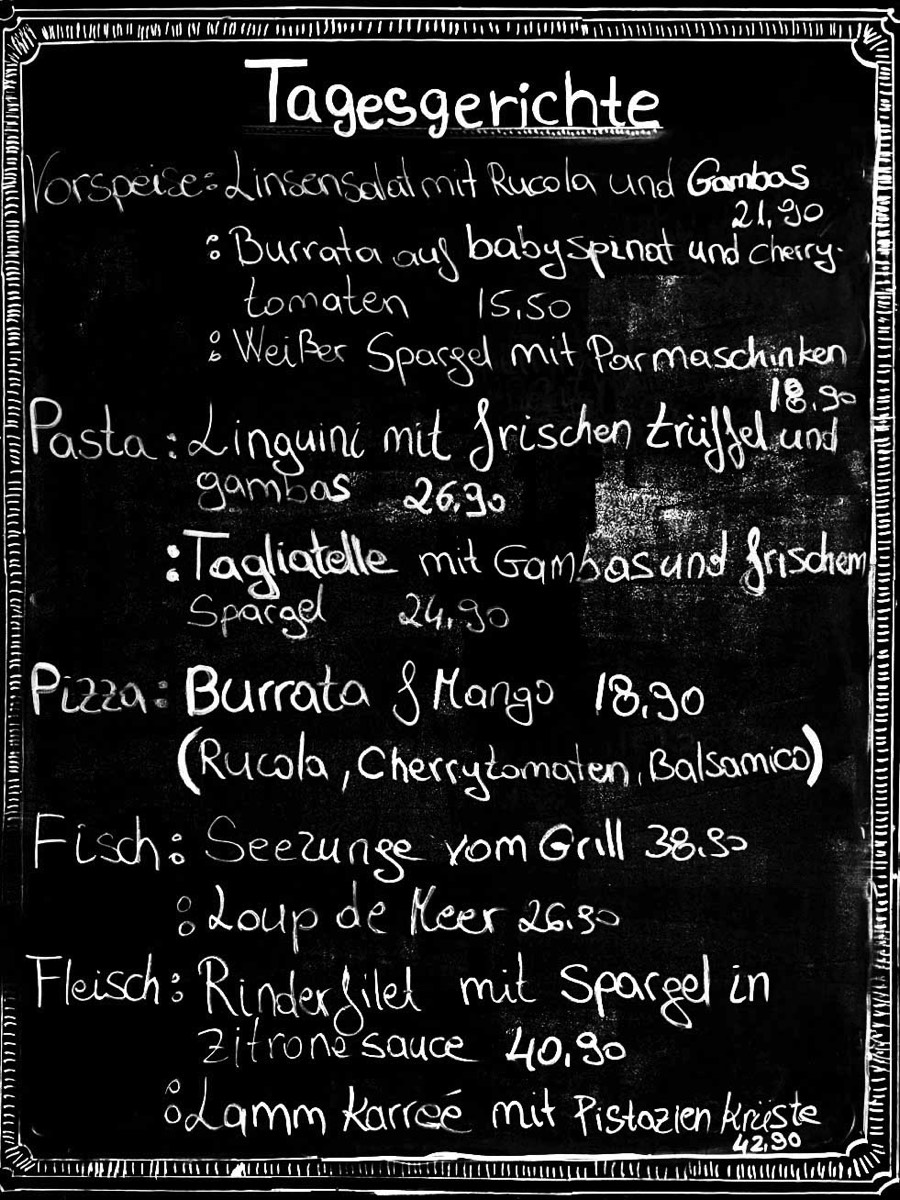 Tagesgerichte
Vorspeise: Linsensalat mit Rucola und Gambas
21,90
: Burrata auf babyspinat und cherry-
tomaten 15,50
: Weißer Spargel mit Parmaschinken
18,90
Pasta: Linguini mit frischen trüffel und
gambas 26,90
: Tagliatelle mit Gambas und frischem
Spargel 24,90
Pizza: Burrata & Mango 18,90
(Rucola, Cherrytomaten, Balsamico)
Fisch: Seezunge vom Grill 38,90
: Loup de Meer 26,90
Fleisch: Rinderfilet mit Spargel in
Zitronesauce 40,90
: Lamm Karreé mit Pistazien Krüste
42,90